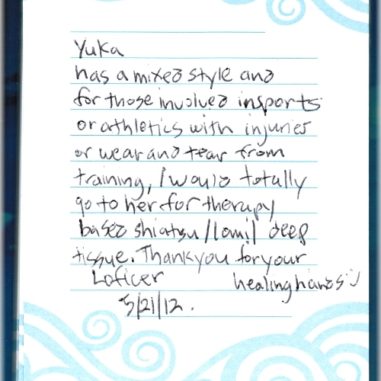 Yuka
has a mixed style and
for those involved in sports
or athletics with injuries
or wear and tear from
training, I would totally
go to her for therapy
based shiatsu/lomi/deep
tissue. Thank you for your
Laficer healing hands :)
5/21/12.